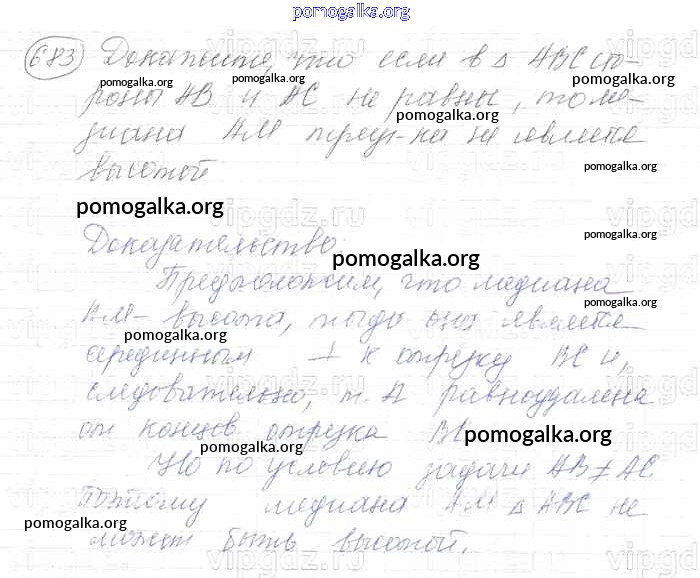 pomogalka.org
683 Докажите, что если в △ ABC сто-
pomogalka.org pomogalka.org
роны AB и AC не равны, то ме-
pomogalka.org pomogalka.org
диана AM треуг-ка не является
pomogalka.org
высотой
pomogalka.org
pomogalka.org
Доказательство.
pomogalka.org
Предположим, что медиана
pomogalka.org
AM - высота, тогда она является
pomogalka.org
серединным ⊥ к отрезку BC и,
следовательно, т. A равноудалена
от концов отрезка BC
pomogalka.org
Но по условию задачи AB ≠ AC
Поэтому медиана AM △ ABC не
pomogalka.org
может быть высотой.